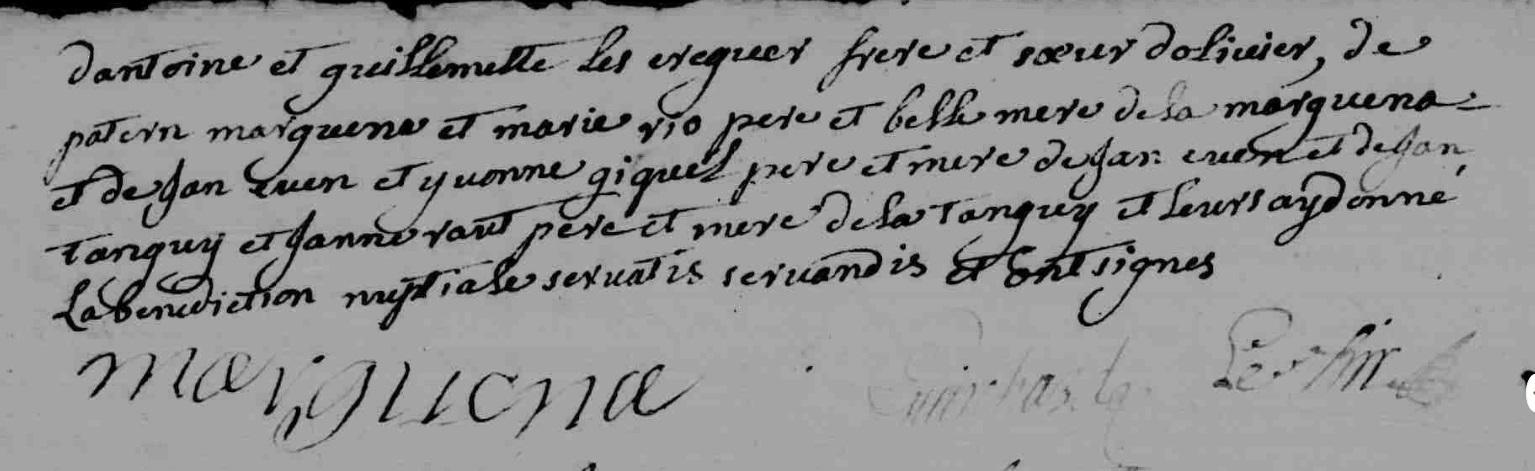 dantoine et guillemette les creguer frere et sœur dolivier, de
patern marquena et marie rio pere et belle mere de la marquena
et de Jan euen et yuonne giquel pere et mere de Jan euen et de Jan
tanguy et Janne raut pere et mere de la tanguy et leurs ay donné
La benediction nuptiale seruatis seruandis et ont signes
marguena